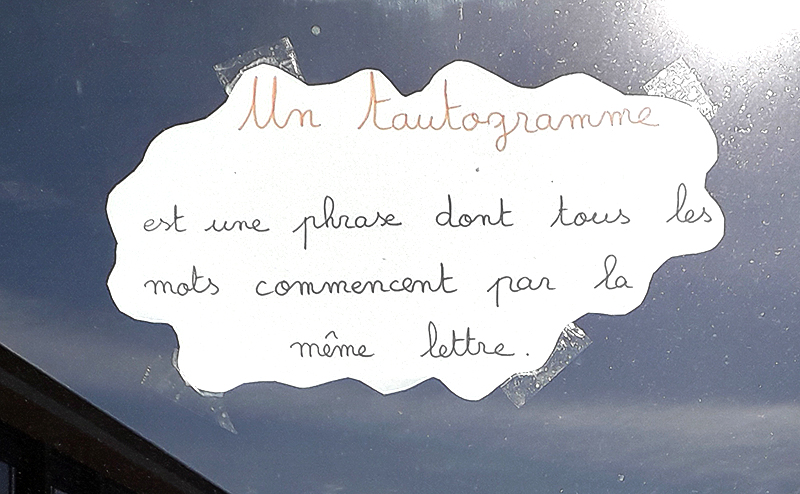 Un tautogramme
est une phrase dont tous les
mots commencent par la
même lettre.